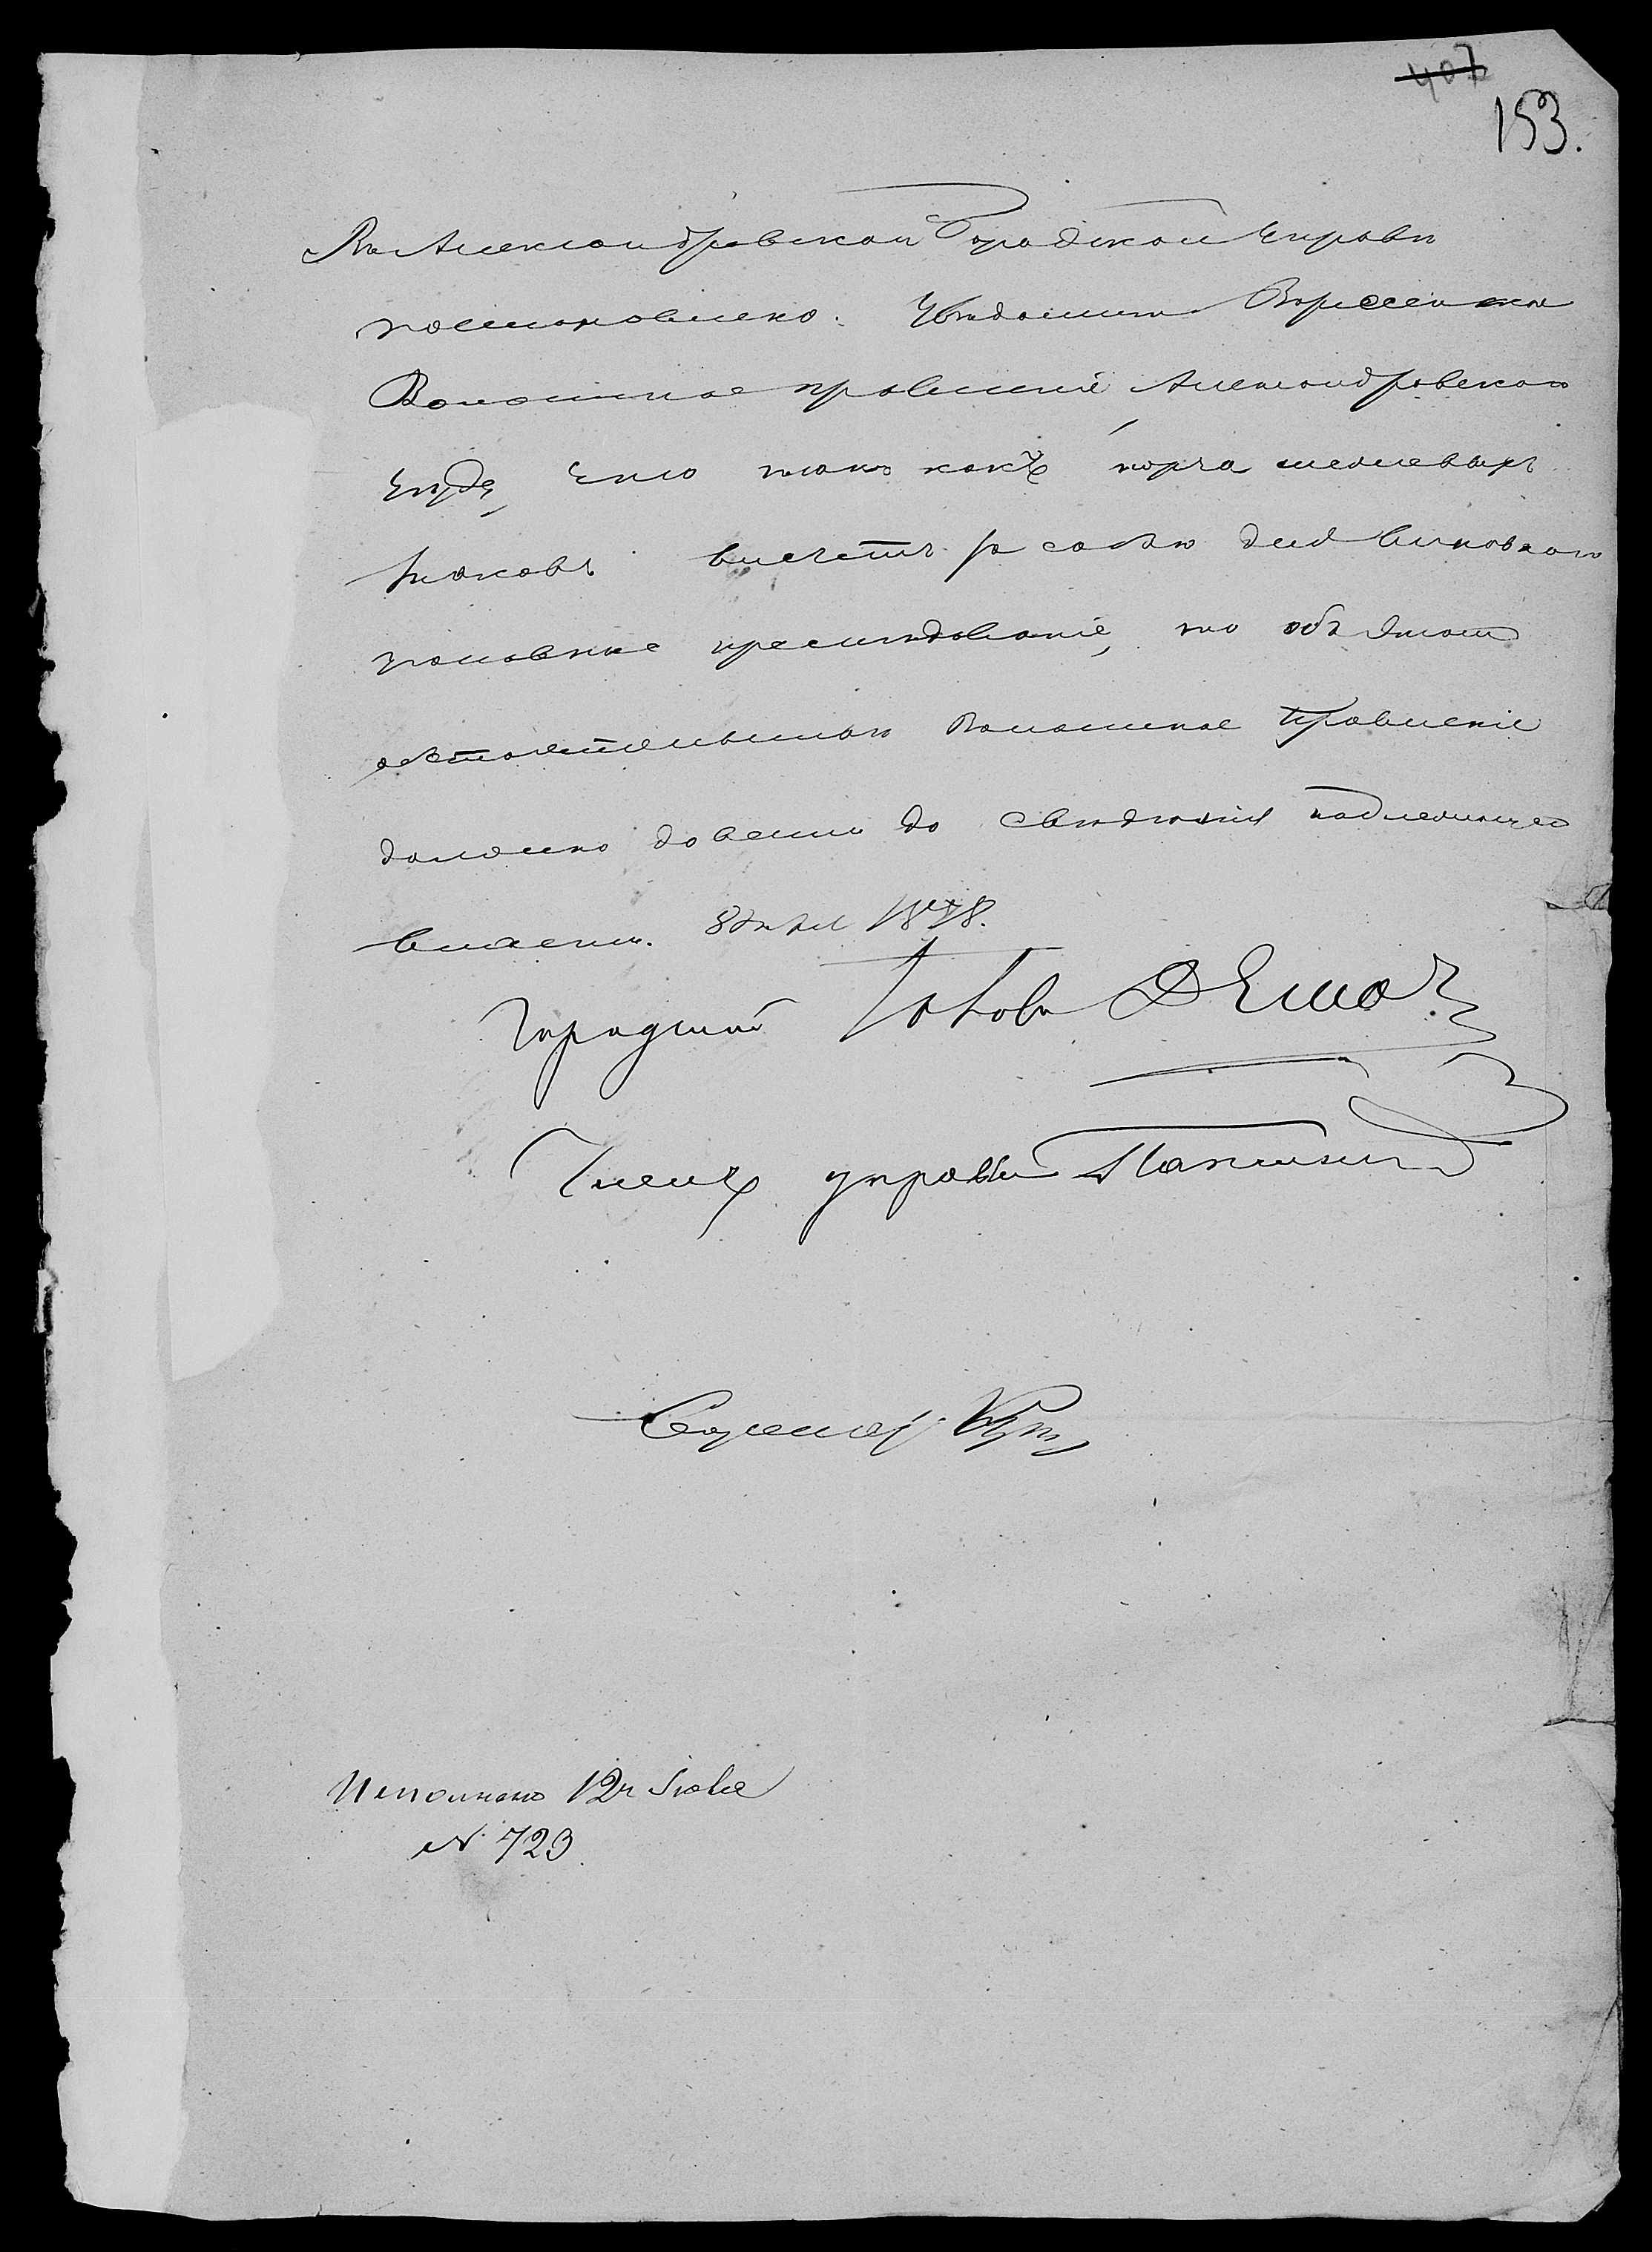 407
153.
Въ Александровской Городской Управѣ
постановлено: Увѣдомить
Волостное правленіе Александровскаго
уѣзда, что такъ какъ порча межевыхъ
знаковъ влечетъ за собою для виновнаго
уголовное преслѣдованіе, то объ этомъ
обстоятельствѣ Волостное Правленіе
должно довести до свѣдѣнія надлежащей
власти. 1878.
Городской Голова
Членъ управы
Секретарь
Исполнено 12
№ 723